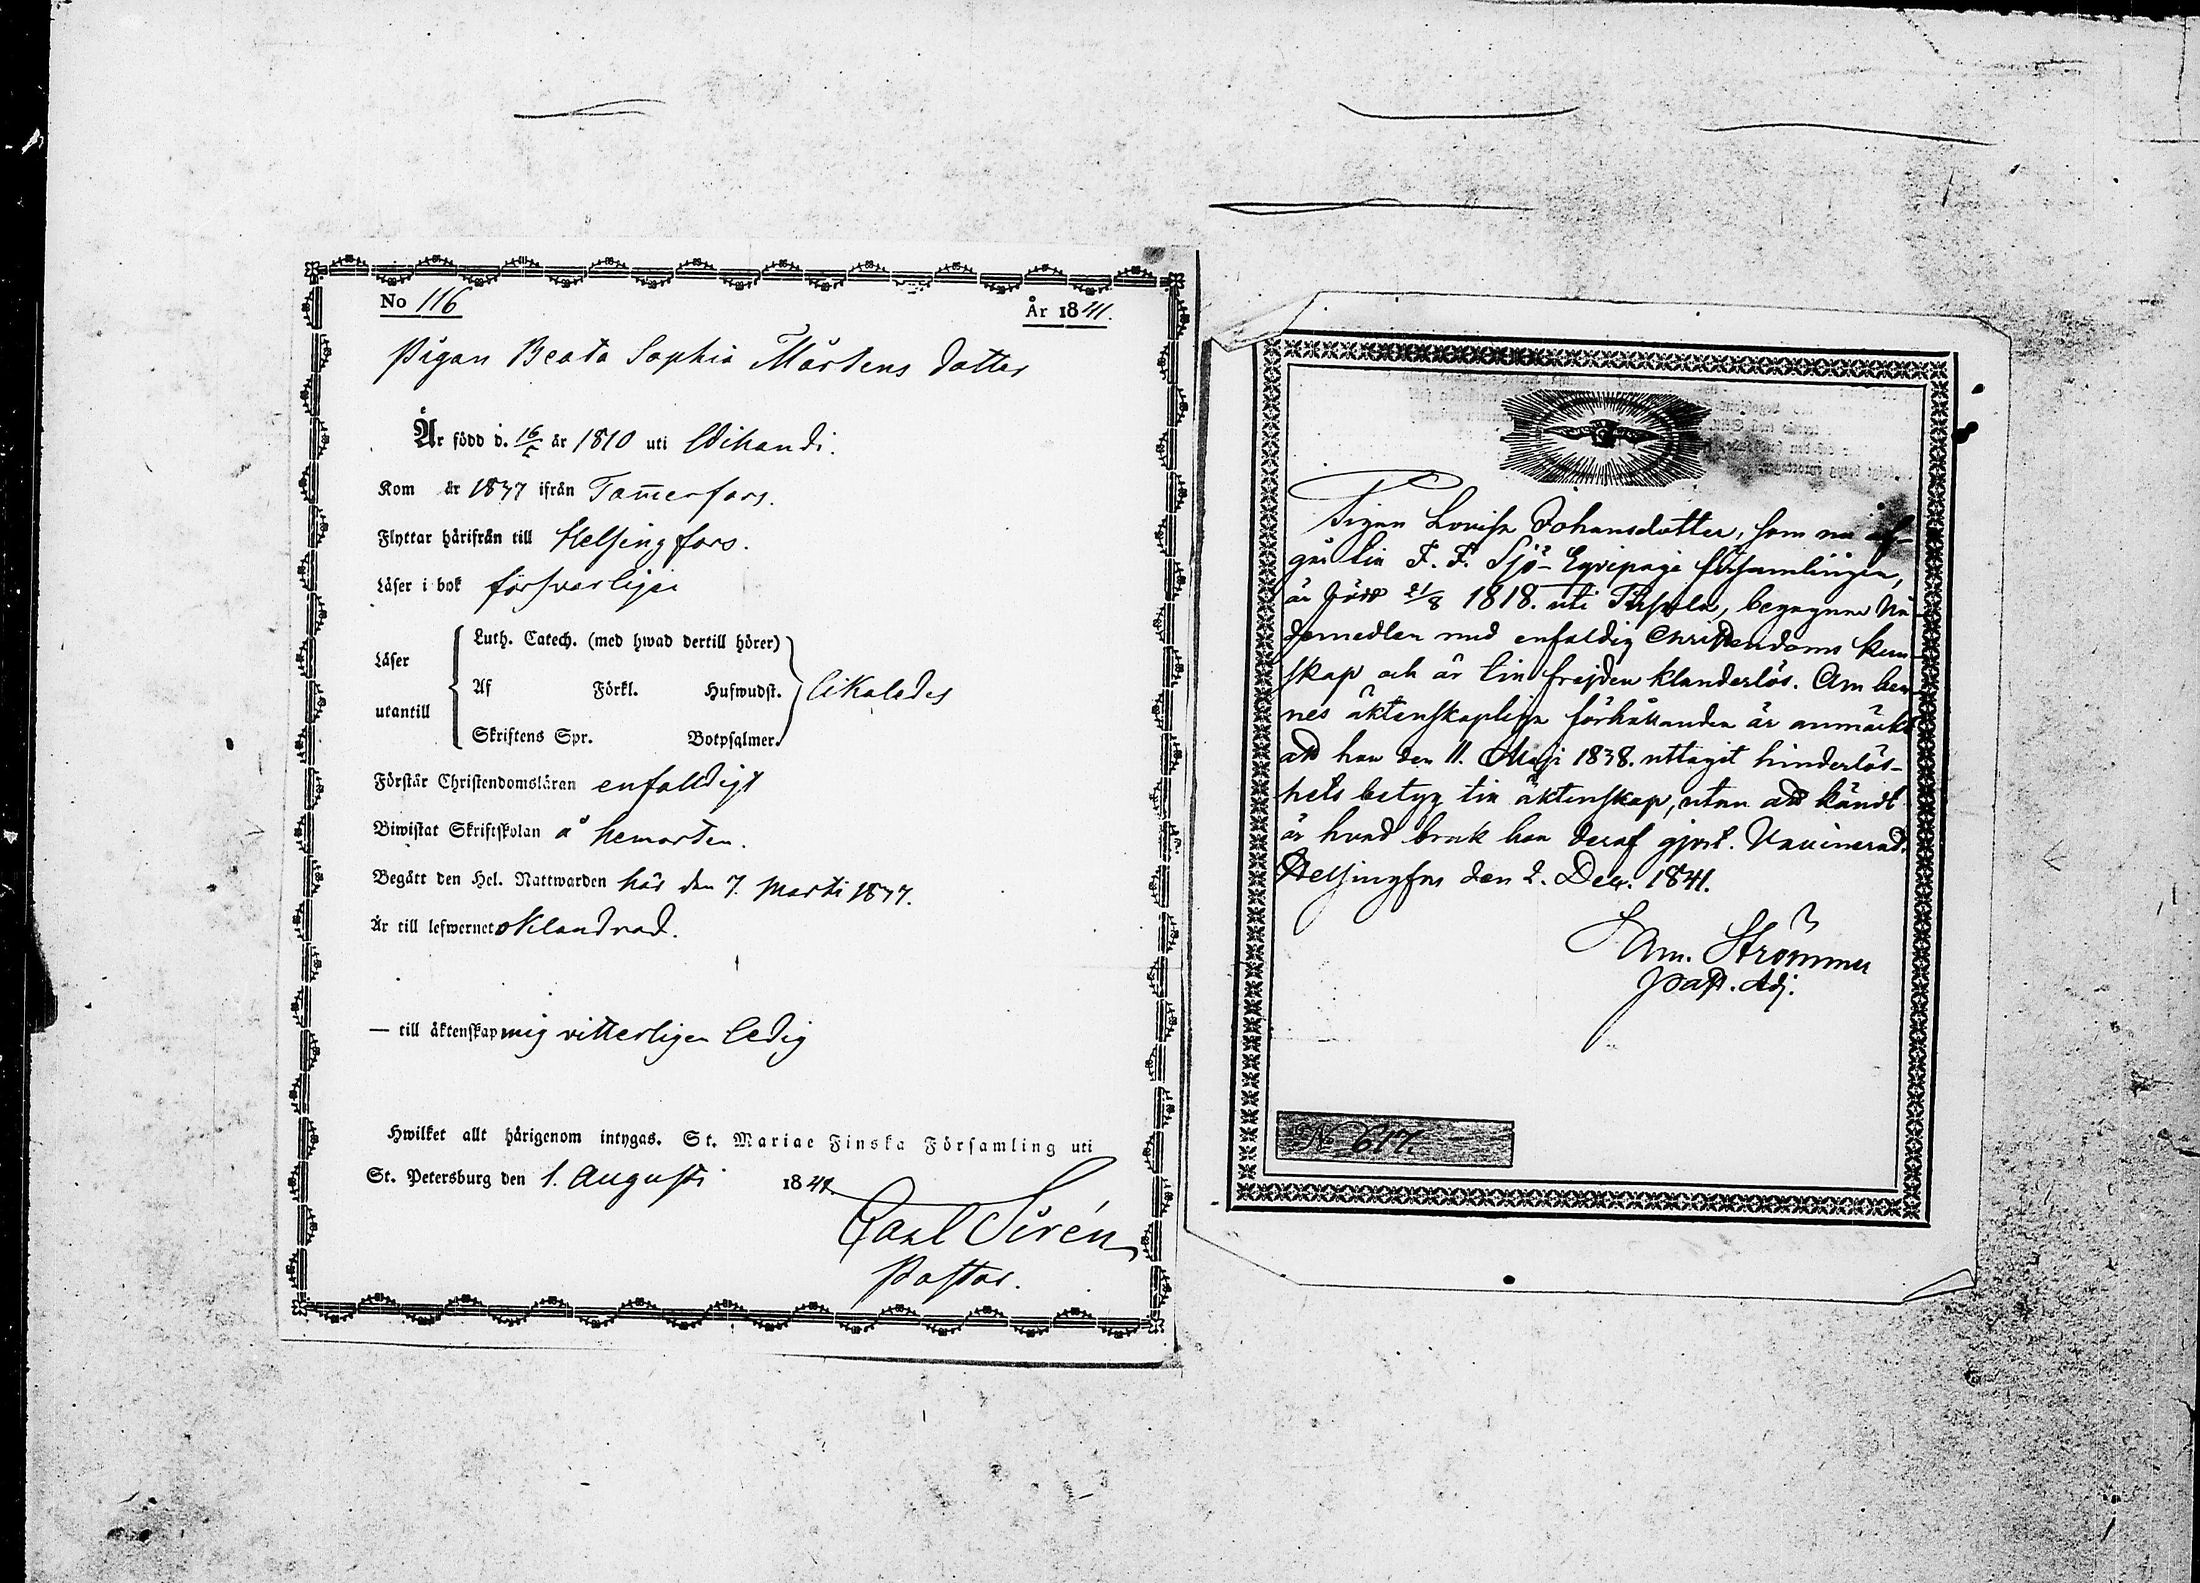 No 116
År 1841.
Pigan Beata Sophia Mårtens dotter
Är född d. 16/5 år 1810 uti Idikandi.
Kom år 1837 ifrån Tam̄erfors.
Flyttar härifrån till Helsingfors.
Läser i bok försvarligen
Läser utantill
Luth. Catech. (med hwad dertill hörer)
Af Förkl. Hufwudst.
Skriftens Spr. Botpsalmer.
likaledes
Förstår Christendomsläran enfaldigt
Biwistat Skriftskolan å hemorten.
Begått den Hel. Nattwarden här den 7. Martii 1837.
Är till lefwernet oklandrad.
— till äktenskap mig vitterligen ledig
Hwilket allt härigenom intygas. St. Mariae Finska Församling uti
St. Petersburg den 1. Augusti 1841.
Carl Sirén
Pastor.
Pigan Lovisa Johansdotter, som nu af-
går till F. F. Sjö-Eqvipage församlingen,
är född 21/8 1818. uti begagnar Nå-
demedlen med enfaldig Christendoms kun-
skap och är till frejden klanderlös. Om hen-
nes äktenskapliga förhållanden är anmärkt
att hon den 11. Maji 1838. uttagit hinderlös-
hets betyg till äktenskap, utan att kändt
är hvad bruk hon deraf gjort. Vaccinerad.
Helsingfors den 2. Dec. 1841.
Sam. Strömmer
past. Adj.
No 617.